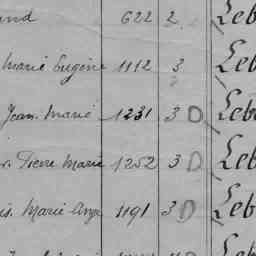 and 622 2 Leb
Marie Eugène 1112 3 Leb
Jean Marie 1231 3 D Leb
Pierre Marie 1252 3 D Leb
is. Marie Ange 1191 3 D Leb
Leb